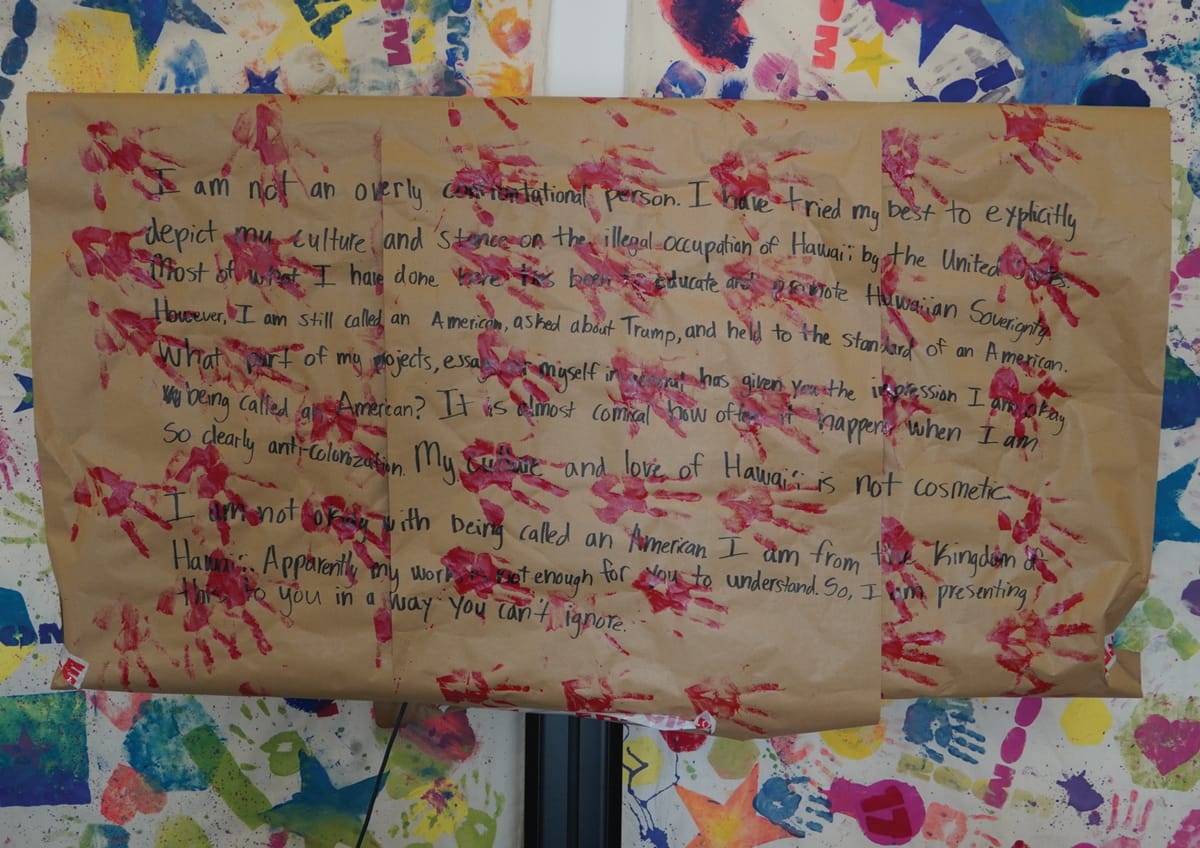 I am not an overly confrontational person. I have tried my best to explicitly
depict my culture and stence on the illegal occupation of Hawai'i by the United States.
Most of what I have done here has been to educate and promote Hawaiian Soverignty
However, I am still called an American, asked about Trump, and held to the standard of an American.
What part of my projects, essays or myself in general has given you the impression I am okay
w/ being called an American? It is almost comical how often it happens when I am
so clearly anti-colonization. My culture and love of Hawai'i is not cosmetic.
I am not okay with being called an American I am from the Kingdom of
Hawai'i. Apparently my work is not enough for you to understand. So, I am presenting
this to you in a way you can't ignore.
MOM
17